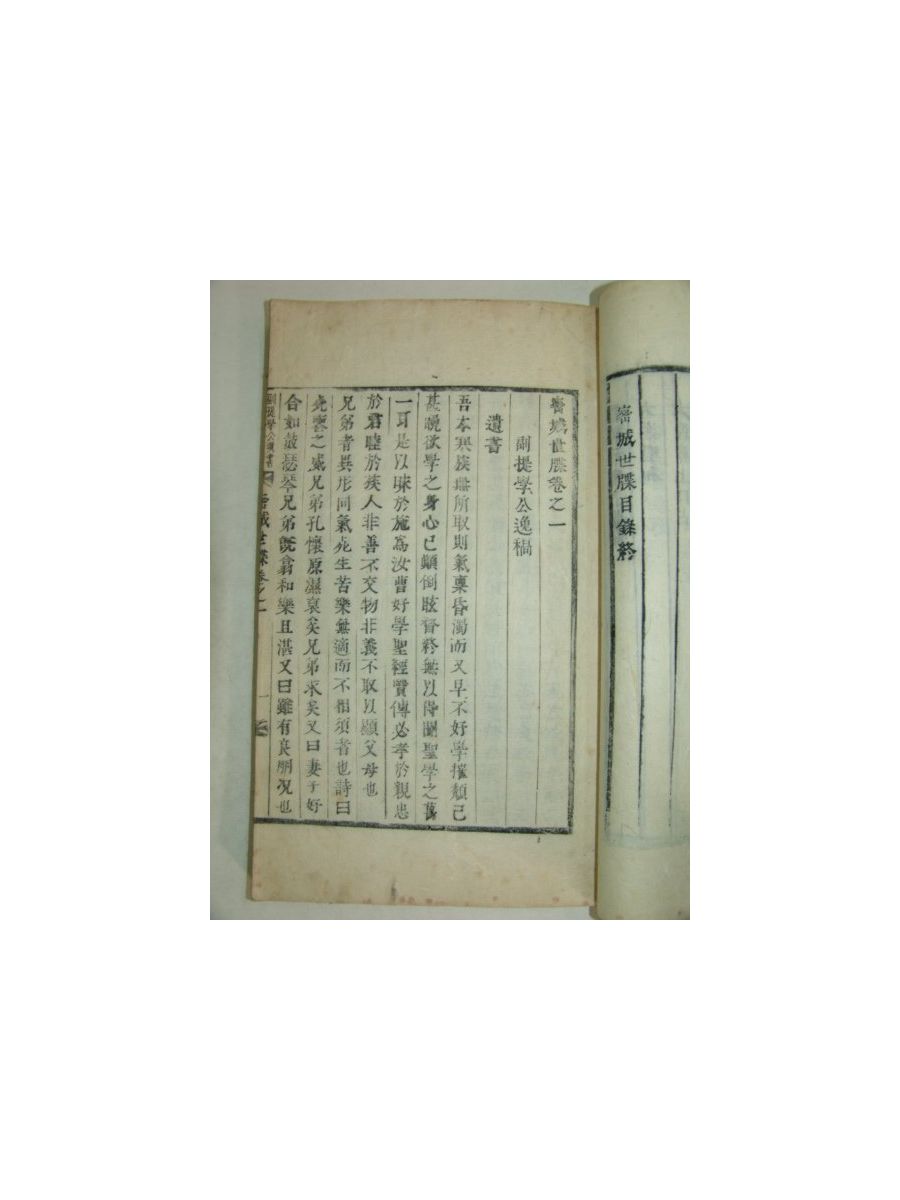 密城世牒目錄終
密城世牒卷之一
副提學公逸稿
遺書
吾本寒族無所取則氣稟昏濁而又早不好學摧頹已
甚晚欲學之身心已顚倒眩瞀終無以得闖聖學之萬
一耳是以昧於施爲汝曹好學聖經賢傳必孝於親忠
於君睦於族人非善不交物非義不取以顯父母也
兄弟者異形同氣死生苦樂無適而不相須者也詩曰
死喪之威兄弟孔懷原濕裒矣兄弟求矣又曰妻子好
合如鼓瑟琴兄弟旣翕和樂且湛又曰雖有良朋况也
副提學公遺書 密城世牒卷之一 一